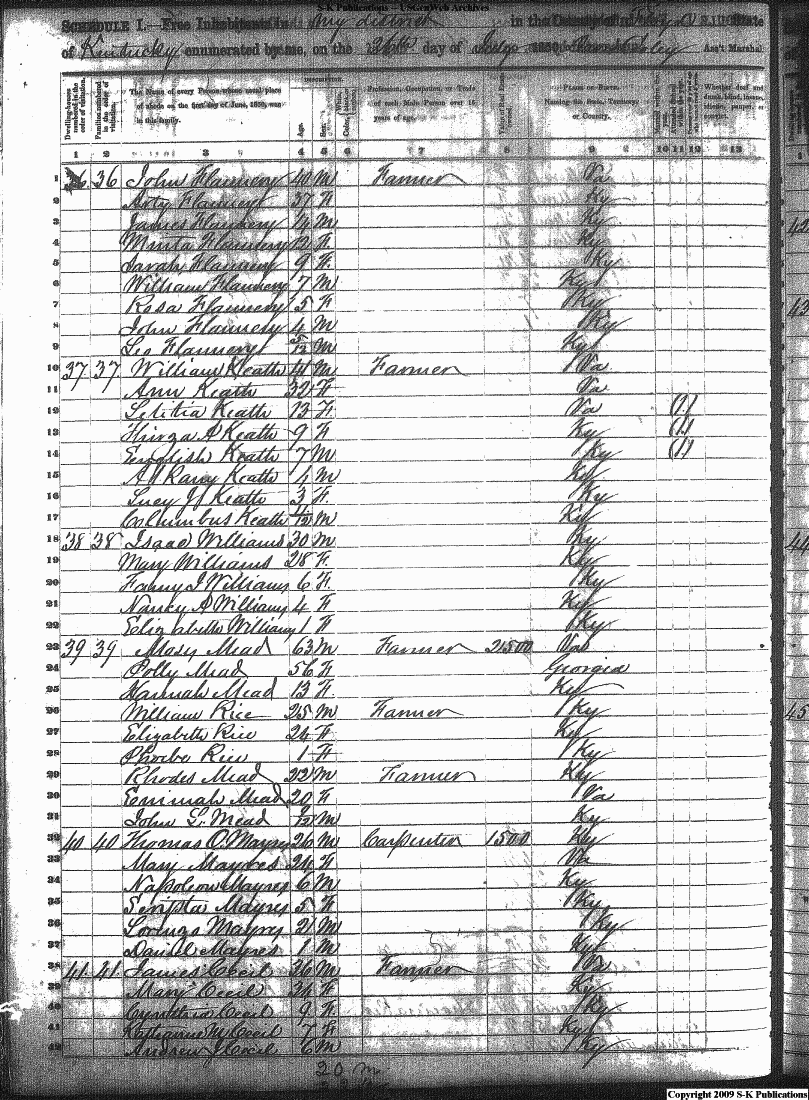 S-K Publications - USGenWeb Archives
SCHEDULE I.—Free Inhabitants in My district in the County of State
of Kentucky enumerated by me, on the 26th day of 1850. Ass't Marshal.
Dwelling-houses numbered in the order of visitation. Families numbered in the order of visitation. The Name of every Person whose usual place of abode on the first day of June, 1850, was in this family. Age. Sex. Color Profession, Occupation, or Trade of each Male Person over 15 years of age. Value of Real Estate owned. PLACE OF BIRTH. Naming the State, Territory, or Country. Whether deaf and dumb, blind, insane, idiotic, pauper, or convict.
1 2 3 4 5 6 7 8 9 10 11 12 13
1 36 36 John Flannery 40 M Farmer Va
2 Flannery 37 F Ky
3 James Flannery 14 M Ky
4 Flannery 12 F Ky
5 Sarah Flannery 9 F Ky
6 William Flannery 7 M Ky
7 Rosa Flannery 5 F Ky
8 John Flannery 4 M Ky
9 Flannery 5/12 M Ky
10 37 37 William Keath 41 M Farmer Va
11 Ann Keath 32 F Va
12 Letitia Keath 13 F Va (1)
13 A Keath 9 F Ky (1)
14 English Keath 7 M Ky (1)
15 Keath 4 M Ky
16 Lucy J Keath 3 F Ky
17 Columbus Keath 4/12 M Ky
18 38 38 Isaac Williams 30 M Ky
19 Mary Williams 28 F Ky
20 Fanny J Williams 6 F Ky
21 Nancy A Williams 4 F Ky
22 Elizabeth Williams 1 F Ky
23 39 39 Mosy Mead 63 M Farmer 2500 Va
24 Polly Mead 56 F Georgia
25 Hannah Mead 13 F Ky
26 William Rice 25 M Farmer Ky
27 Elizabeth Rice 24 F Ky
28 Phoebe Rice 1 F Ky
29 Rhodes Mead 22 M Farmer Ky
30 Mead 20 F Va
31 John L. Mead 9/12 M Ky
32 40 40 Thomas C. Maynes 26 M Carpenter 1500 Ky
33 Mary Maynes 24 F Va
34 Napoleon Maynes 6 M Ky
35 Maynes 5 F Ky
36 Lorenzo Maynes 2 M Ky
37 Daniel Maynes 1 M Ky
38 41 41 James Cecil 36 M Farmer Va
39 Mary Cecil 34 F Ky
40 Cynthia Cecil 9 F Ky
41 Katharine M Cecil 7 F Ky
42 Andrew J Cecil 6 M Ky
20 M
Copyright 2009 S-K Publications